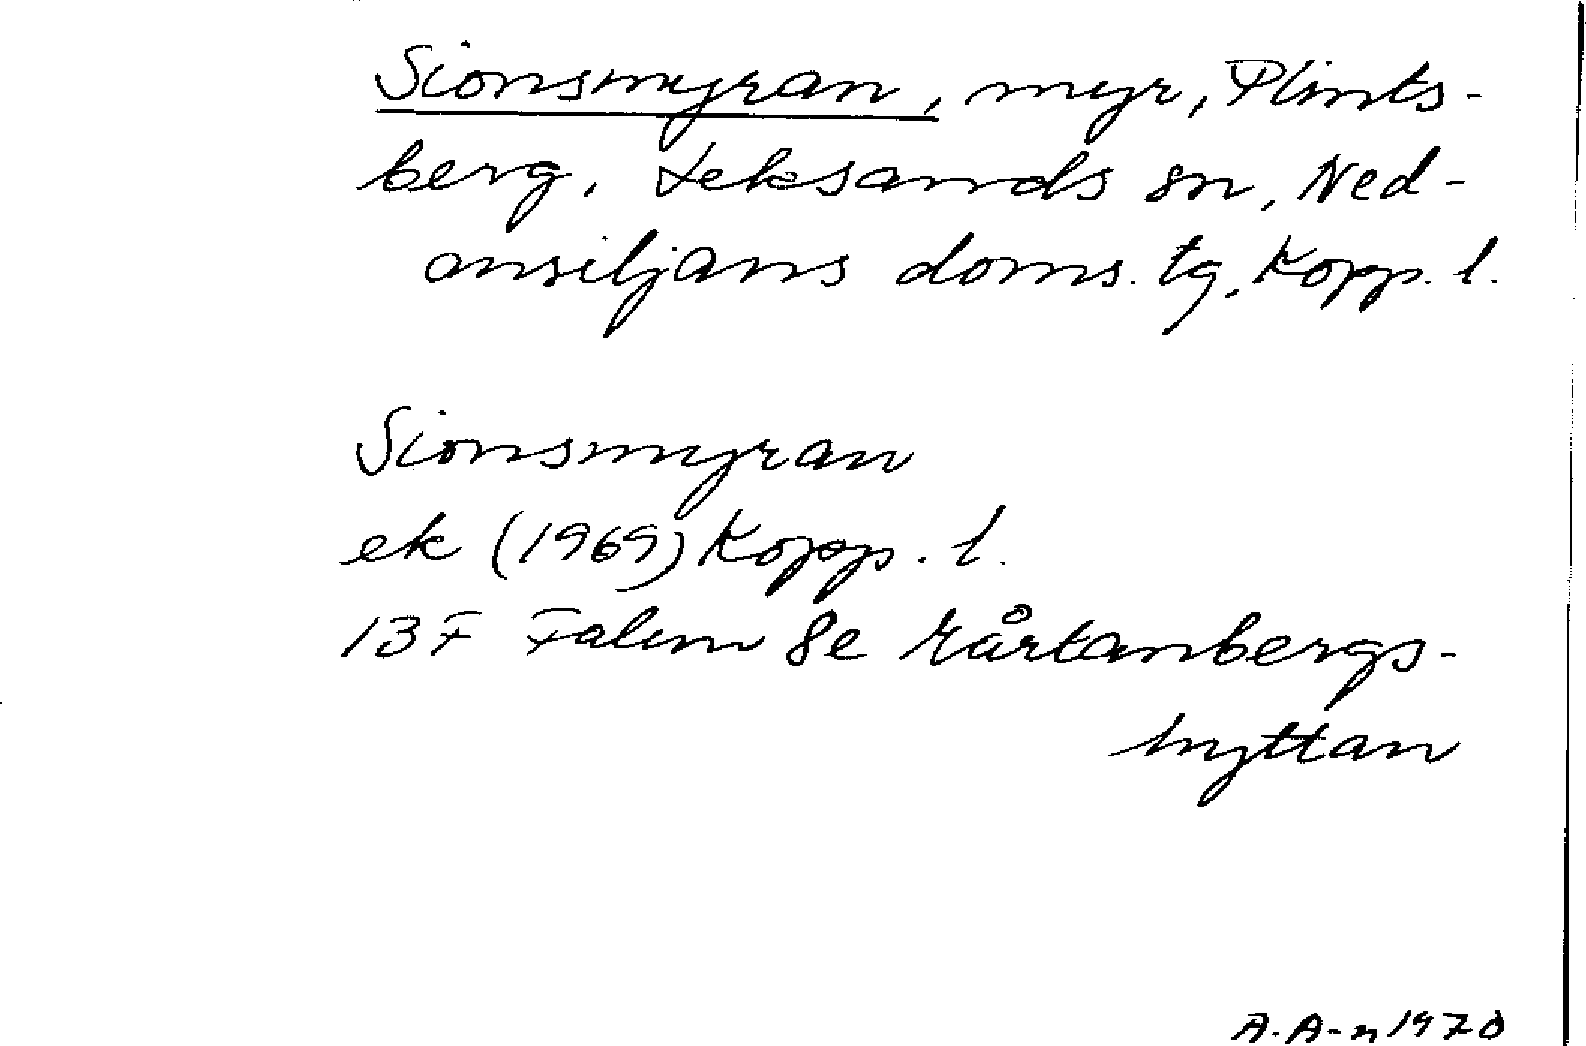 Sionsmyran, myr, Plints-
berg, Leksands sn, Ned-
ansiljans doms. tg, Kopp. l.
Sionsmyran
ek (1969) Kopp. l.
13F Falun 8e Mårtanbergs-
hyttan
A.A-n 1970